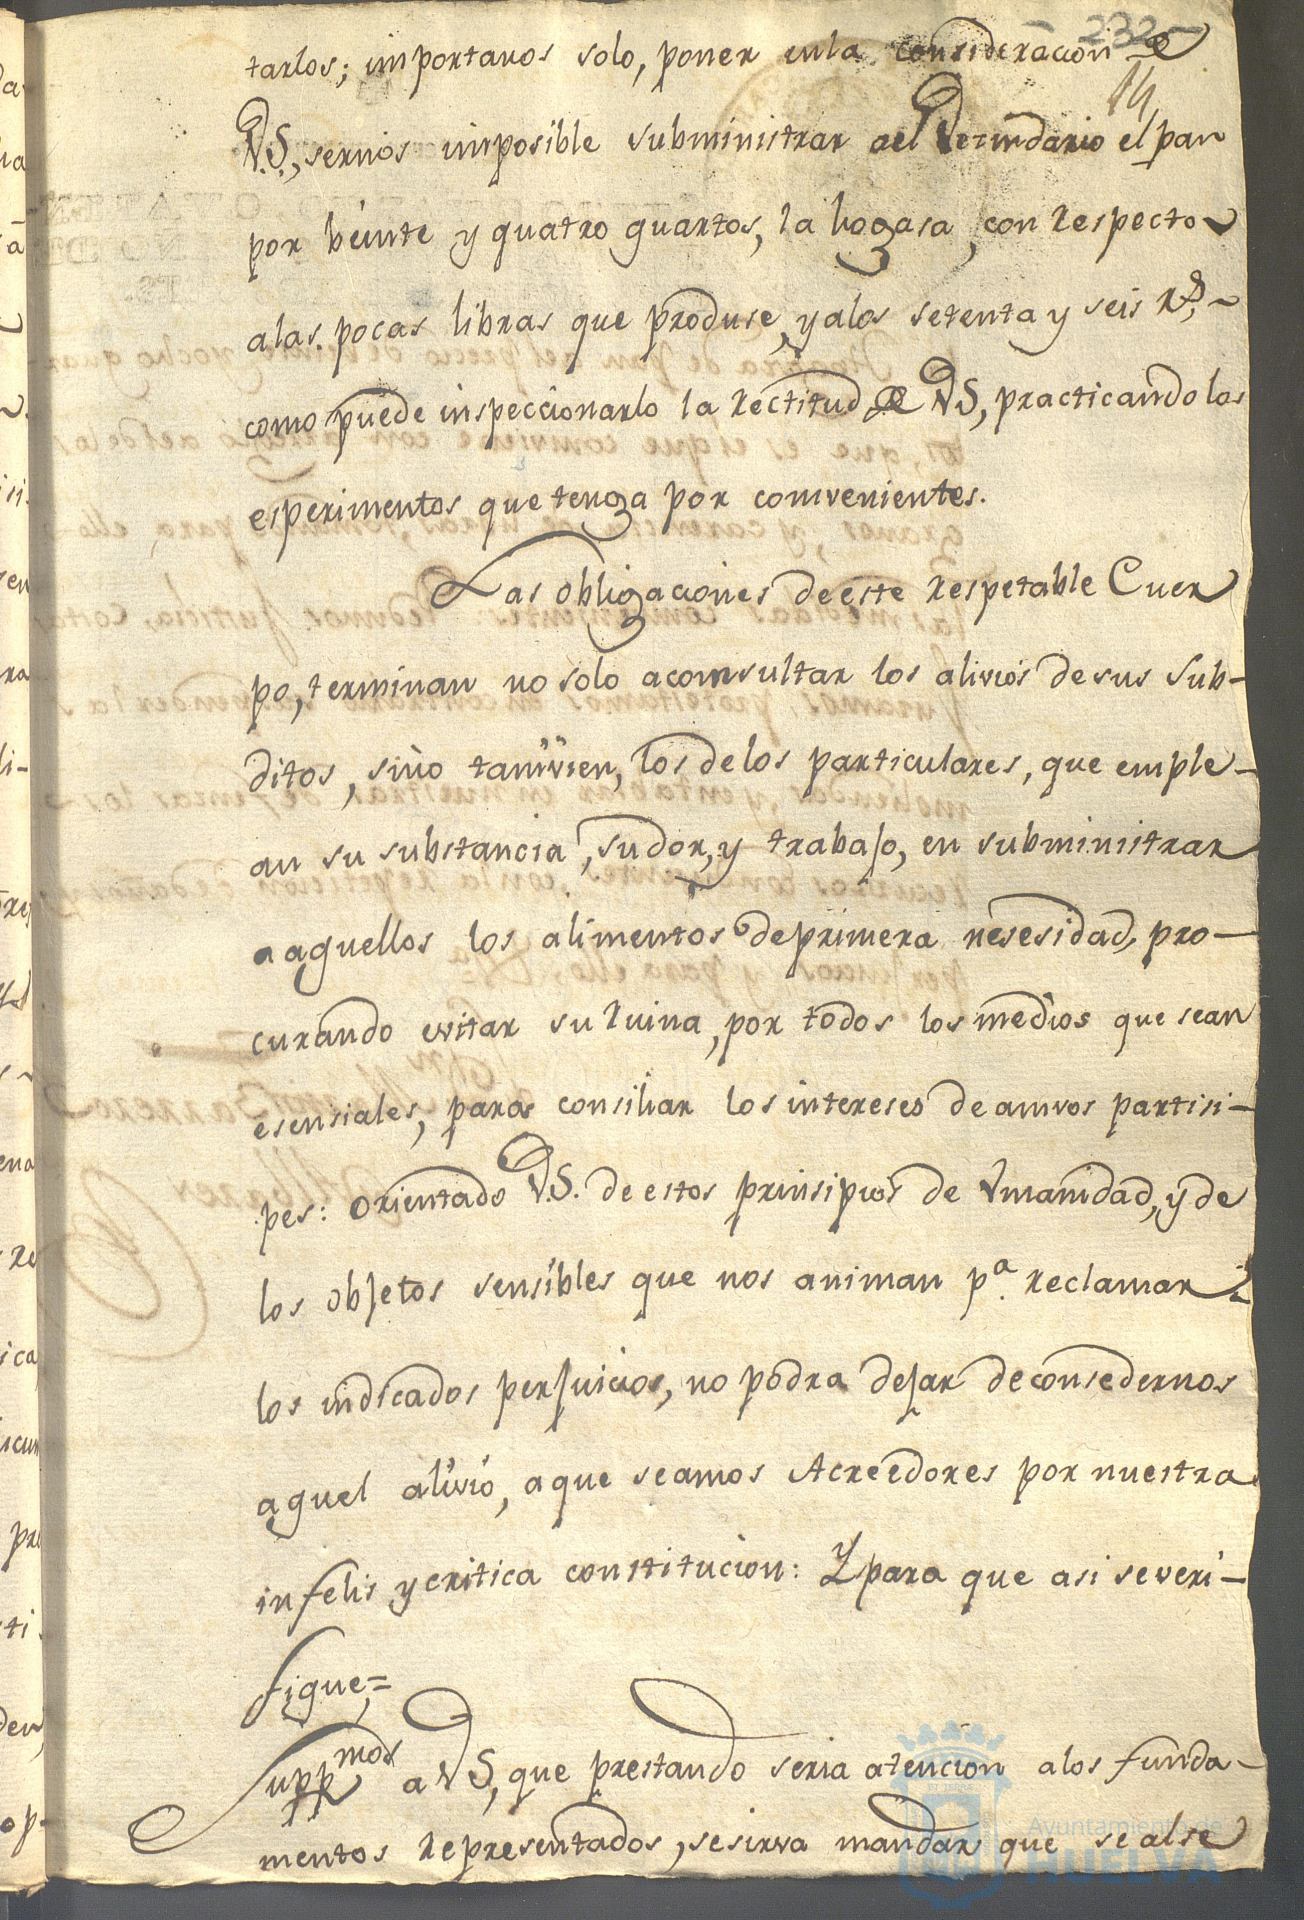 232
14
tarlos; importanos solo, poner enla consideracion de
V.S., sernos imposible subministrar ael Vecindario el pan
por veinte y quatro quartos, la hogasa, con respecto
alas pocas libras que produse, y alos setenta y seis rs.
como puede inspeccionarlo la rectitud de VS, practicando los
esperimentos que tenga por comvenientes.
Las obligaciones de este respetable Cuer
po, terminan no solo a comsultar los alivios de sus Sub-
ditos, sino tamvien, los de los particulares, que emple-
an su substancia, sudor, y trabajo, en subministrar
a aquellos los alimentos de primera nesesidad, pro-
curando evitar su ruina, por todos los medios que sean
esensiales, para consiliar los intereses de amvos partisi-
pes: orientado V.S. de estos prinsipios de Vmanidad, y de
los objetos sensibles que nos animan pa. reclamar
los indicados perjuicios, no podra dejar de consedernos
aquel alivio, a que seamos Acreedores por nuestra
infelis y critica constitucion: Y para que asi se veri-
figue,=
Suppmos a VS, que prestando seria atencion alos funda-
mentos representados, se sirva mandar que se alse
Ayuntamiento de
HUELVA